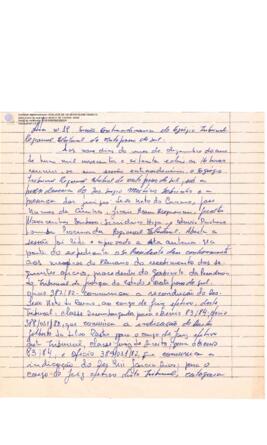 Ata nº 38 Sessão Extraordinária do Egrégio Tribunal
Regional Eleitoral de Mato Grosso do Sul.
Aos nove dias do mês de dezembro do ano
de hum mil novecentos e oitenta e dois às 16 horas
reuniu-se em sessão extraordinária o Egrégio
Tribunal Regional Eleitoral de Mato Grosso do Sul, sob a
presidência do Des Sérgio Martins Sobrinho e a
presença dos Juízes, Leão Neto do Carmo, José
Nunes da Cunha,
Higa, e
Procurador Regional Eleitoral. Aberta a
sessão foi lida e aprovada a Ata anterior. Na
parte do expediente o Presidente deu conhecimento
aos membros do Plenário do recebimento dos se-
guintes ofícios, procedentes do Gabinete da Presidência
do Tribunal de Justiça do Estado de Mato Grosso do Sul,
ofício 387/82 - comunicando a recondução do Des.
Leão Neto do Carmo, ao cargo de Juiz efetivo, deste
Tribunal, classe Desembargador para o biênio 83/84; ofício
388/031/82, que comunica a indicação do
da Silva para o cargo de Juiz efetivo
este Tribunal, classe Juiz de Direito para o biênio
83/84, e ofício 389/031/82, que comunica a
indicação do Juiz para o
cargo de Juiz efetivo deste Tribunal, categoria